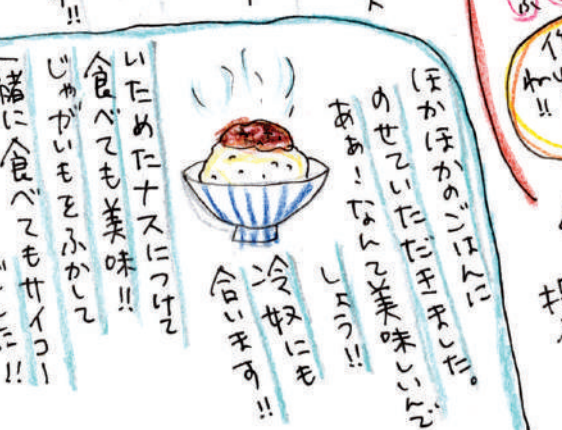 ほかほかのごはんに
のせていただきました。
ああ！なんて美味しいんで
しょう!!
冷奴にも
合います!!
いためたナスにつけて
食べても美味!!
じゃがいもをふかして
一緒に食べてもサイコー
でした!!